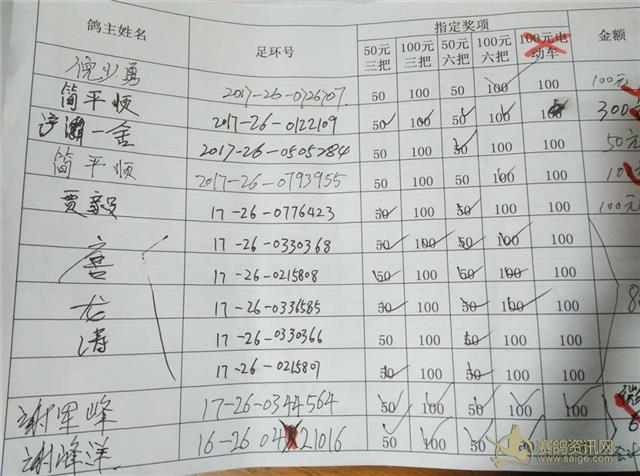 鸽主姓名 足环号 指定奖项 金额
50元三把 100元三把 50元六把 100元六把 100元电动车
倪少勇 2017-26-0726707 50 100 50 100 100 100元
简平顺 2017-26-0122109 50 100 50 100 100 300
一舍 2017-26-0505284 50 100 50 100 100 50元
简平顺 2017-26-0793955 50 100 50 100 100
贾毅 17-26-0776423 50 100 50 100 100 100元
唐龙涛 17-26-0330368 50 100 50 100 100
17-26-0215808 50 100 50 100 100
17-26-0336585 50 100 50 100 100 8
17-26-0330366 50 100 50 100 100
17-26-0215807 50 100 50 100 100
谢军峰 17-26-0344564 50 100 50 100 100
谢峰洋 16-26 04 21016 50 100 50 100 100 6
赛鸽资讯网
www.saige.com